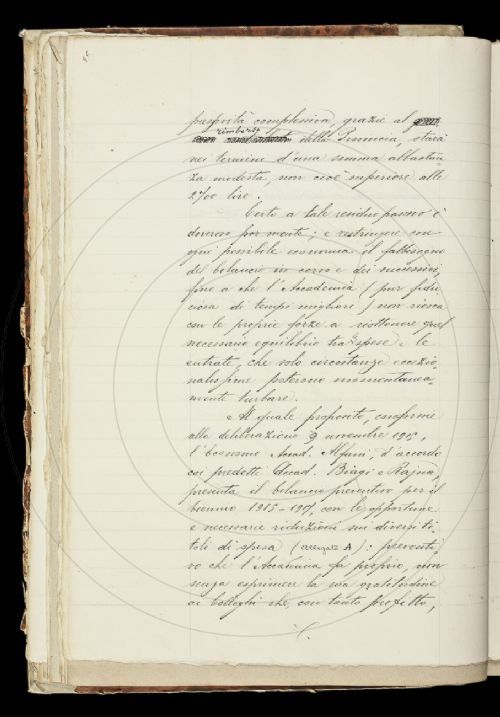 complessiva, grazie al
rimborso
della Provincia, starà
nei termini d'una somma abbastan-
za modesta, non cioè superiore alle
2700 lire.
Certo a tale residuo passivo è
doveroso por mente; e restringere in
ogni possibile il fabbisogno
del bilancio in corso e dei successivi,
fino a che l'Accademia (pur fidu-
ciosa di tempi migliori) non riesca
con le proprie forze a riottenere quel
necessario equilibrio tra le spese e le
entrate, che solo circostanze eccezio-
nalissime poterono momentanea-
mente turbare.
Al quale proposito, conforme
alla deliberazione 9 novembre 1915,
l'Economo Accad. Alfani, d'accordo
coi predetti Accad. Biagi e Rajna,
presenta il bilancio preventivo per il
biennio 1915-191, con le opportune
e necessarie riduzioni sui diversi ti-
toli di spesa (allegato A): preventi-
vo che l'Accademia fa proprio, non
senza esprimere la sua gratitudine
ai Colleghi che, con tanto